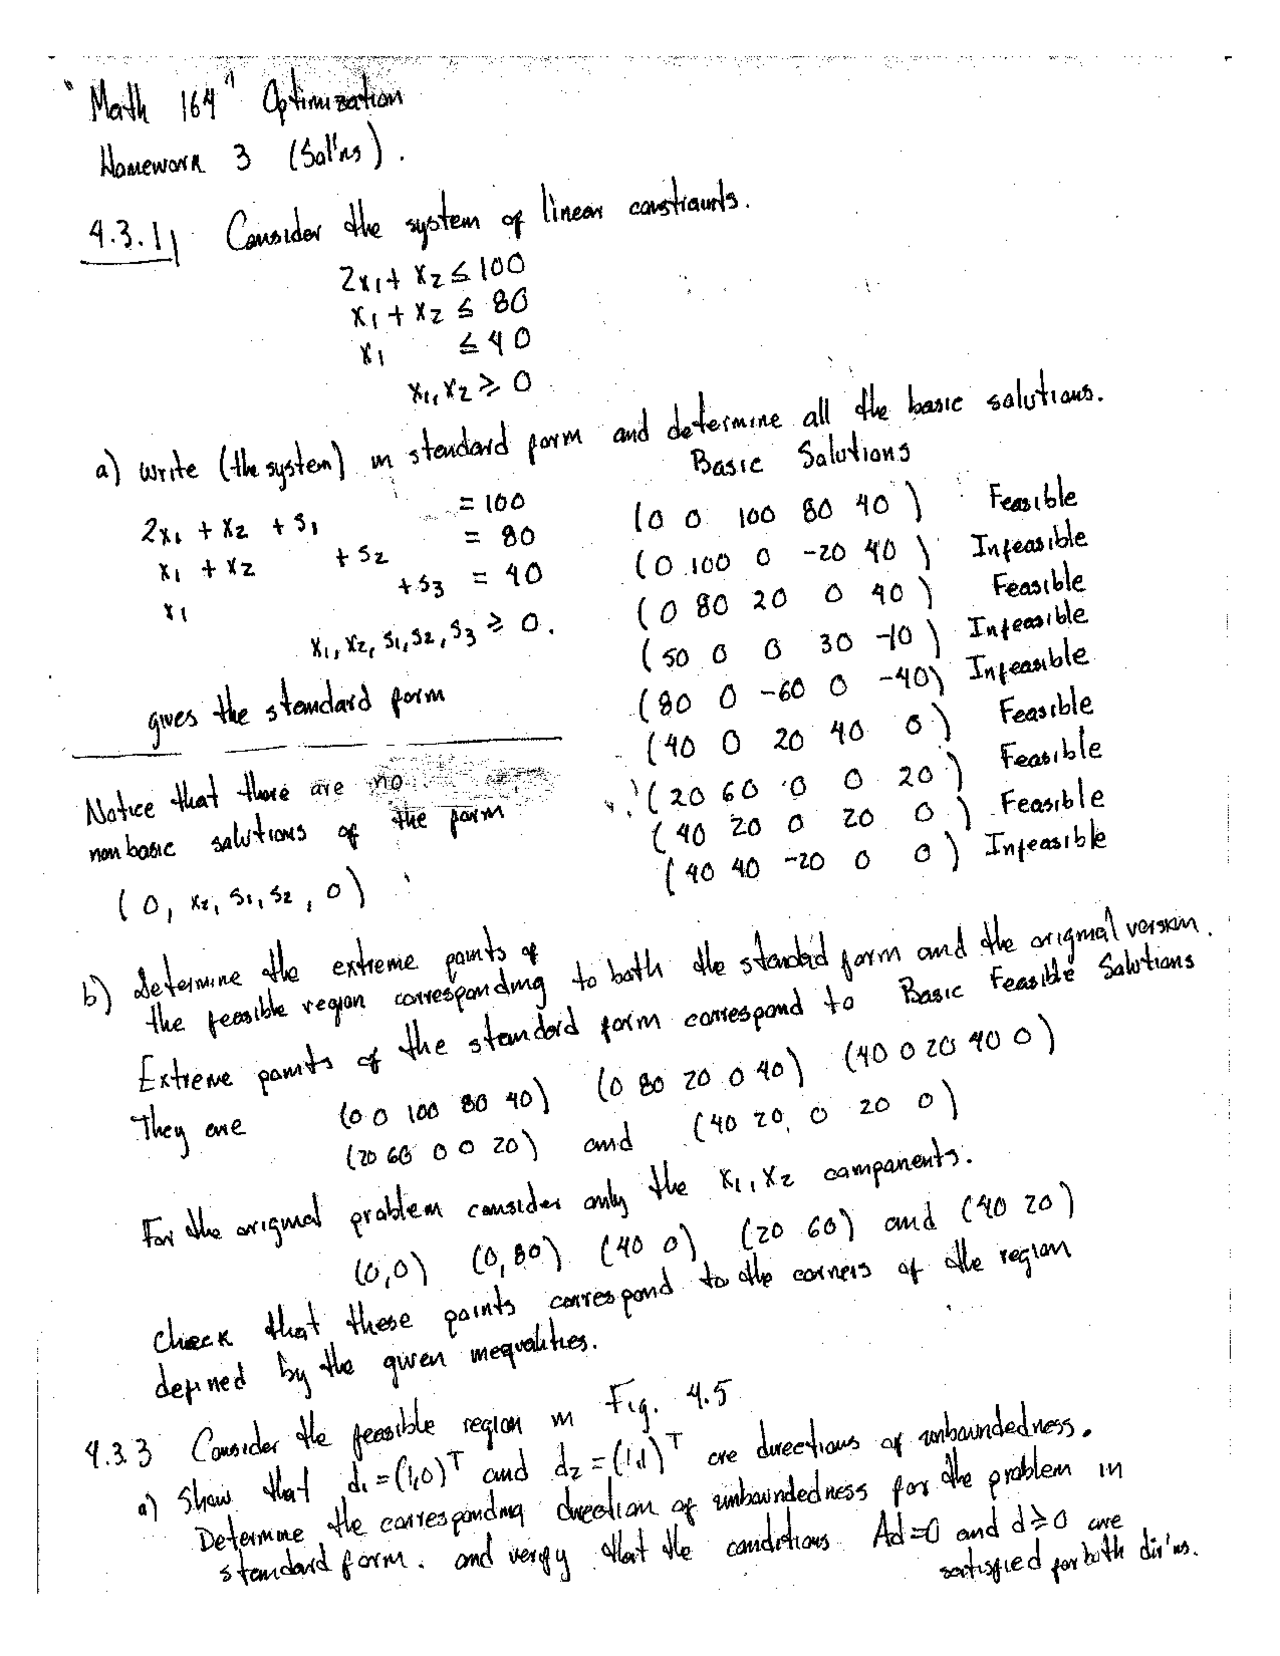 "Math 164" Optimization
Homework 3 (Sol'ns).
4.3.1 Consider the system of linear constraints.
2x₁ + x₂ ≤ 100
x₁ + x₂ ≤ 80
x₁ ≤ 40
x₁, x₂ ≥ 0
a) write (the system) in standard form and determine all the basic solutions.
Basic Solutions
2x₁ + x₂ + s₁ = 100
x₁ + x₂ + s₂ = 80
x₁ + s₃ = 40
x₁, x₂, s₁, s₂, s₃ ≥ 0.
gives the standard form
(0 0 100 80 40) Feasible
(0 100 0 -20 40) Infeasible
(0 80 20 0 40) Feasible
(50 0 0 30 -10) Infeasible
(80 0 -60 0 -40) Infeasible
(40 0 20 40 0) Feasible
(20 60 0 0 20) Feasible
(40 20 0 20 0) Feasible
(40 40 -20 0 0) Infeasible
Notice that there are no
nonbasic solutions of the form
(0, x₂, s₁, s₂, 0)
b) Determine the extreme points of
the feasible region corresponding to both the standard form and the original version.
Extreme points of the standard form correspond to Basic Feasible Solutions
They are (0 0 100 80 40) (0 80 20 0 40) (40 0 20 40 0)
(20 60 0 0 20) and (40 20, 0 20 0)
For the original problem consider only the x₁, x₂ components.
(0,0) (0,80) (40 0) (20 60) and (40 20)
Check that these points correspond to the corners of the region
defined by the given inequalities.
4.3.3 Consider the feasible region in Fig. 4.5
a) Show that d₁ = (1,0)ᵀ and d₂ = (1,1)ᵀ are directions of unboundedness.
Determine the corresponding direction of unboundedness for the problem in
standard form. and verify that the conditions Ad=0 and d≥0 are
satisfied for both dir'ns.